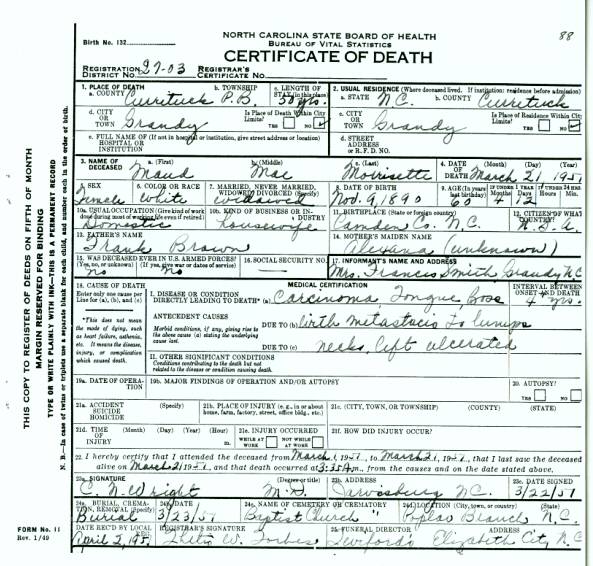 88
NORTH CAROLINA STATE BOARD OF HEALTH
BUREAU OF VITAL STATISTICS
Birth No. 132
CERTIFICATE OF DEATH
REGISTRATION DISTRICT No. 27-03 REGISTRAR'S CERTIFICATE No.
1. PLACE OF DEATH a. COUNTY Currituck b. TOWNSHIP P.B. c. LENGTH OF STAY (in this place) 50 yrs.
2. USUAL RESIDENCE (Where deceased lived. If institution: residence before admission) a. STATE N.C. b. COUNTY Currituck
d. CITY OR TOWN Grandy Is Place of Death Within City Limits? YES NO
c. CITY OR TOWN Grandy Is Place of Residence Within City Limits? YES NO
e. FULL NAME OF (If not in hospital or institution, give street address or location) HOSPITAL OR INSTITUTION
d. STREET ADDRESS OR R. F. D. NO.
3. NAME OF DECEASED a. (First) Maud b. (Middle) Mac c. (Last) Morrisette
4. DATE OF DEATH (Month) (Day) (Year) March 21 1951
5. SEX Female 6. COLOR OR RACE White 7. MARRIED, NEVER MARRIED, WIDOWED, DIVORCED (Specify) widowed
8. DATE OF BIRTH Nov. 9, 1890 9. AGE (In years last birthday) 60 IF UNDER 1 YEAR 4 12 IF UNDER 24 HRS.
10a. USUAL OCCUPATION (Give kind of work done during most of working life, even if retired) Domestic
10b. KIND OF BUSINESS OR INDUSTRY housewife
11. BIRTHPLACE (State or foreign country) Camden Co. N.C. 12. CITIZEN OF WHAT COUNTRY? U.S.A.
13. FATHER'S NAME Frank Brown
14. MOTHER'S MAIDEN NAME (unknown)
15. WAS DECEASED EVER IN U.S. ARMED FORCES? (Yes, no, or unknown) (If yes, give war or dates of service) no no
16. SOCIAL SECURITY NO.
17. INFORMANT'S NAME AND ADDRESS Mrs. Francis Smith Grandy N.C.
18. CAUSE OF DEATH Enter only one cause per line for (a), (b), and (c)
MEDICAL CERTIFICATION
INTERVAL BETWEEN ONSET AND DEATH 4 yrs.
I. DISEASE OR CONDITION DIRECTLY LEADING TO DEATH* (a) Carcinoma, Tongue Base
*This does not mean the mode of dying, such as heart failure, asthenia, etc. It means the disease, injury, or complication which caused death.
ANTECEDENT CAUSES
Morbid conditions, if any, giving rise to the above cause (a) stating the underlying cause last.
DUE TO (b) with metastacis to lumps
DUE TO (c) necks, left ulcerated
II. OTHER SIGNIFICANT CONDITIONS
Conditions contributing to the death but not related to the disease or condition causing death.
19a. DATE OF OPERATION 19b. MAJOR FINDINGS OF OPERATION AND/OR AUTOPSY 20. AUTOPSY? YES NO
21a. ACCIDENT SUICIDE HOMICIDE (Specify) 21b. PLACE OF INJURY (e. g., in or about home, farm, factory, street, office bldg., etc.) 21c. (CITY, TOWN, OR TOWNSHIP) (COUNTY) (STATE)
21d. TIME OF INJURY (Month) (Day) (Year) (Hour) m. 21e. INJURY OCCURRED WHILE AT WORK NOT WHILE AT WORK 21f. HOW DID INJURY OCCUR?
22. I hereby certify that I attended the deceased from March 1, 1951, to March 21, 1951, that I last saw the deceased
alive on March 21 1951, and that death occurred at 3:35 A m., from the causes and on the date stated above.
23a. SIGNATURE C. N. Wright (Degree or title) M.D. 23b. ADDRESS Jarvisburg N.C. 23c. DATE SIGNED 3/22/51
24a. BURIAL, CREMATION, REMOVAL (Specify) Burial 24b. DATE 3/23/51 24c. NAME OF CEMETERY OR CREMATORY Baptist Church 24d. LOCATION (City, town, or county) (State) Poplar Branch N.C.
DATE REC'D BY LOCAL REG. April 2, 1951 REGISTRAR'S SIGNATURE W. Forbes 25. FUNERAL DIRECTOR Twiford's ADDRESS Elizabeth City N.C.
FORM No. 11
Rev. 1/49
THIS COPY TO REGISTER OF DEEDS ON FIFTH OF MONTH
MARGIN RESERVED FOR BINDING
TYPE OR WRITE PLAINLY WITH INK—THIS IS A PERMANENT RECORD
N. B.—In case of twins or triplets use a separate blank for each child, and number each in the order of birth.